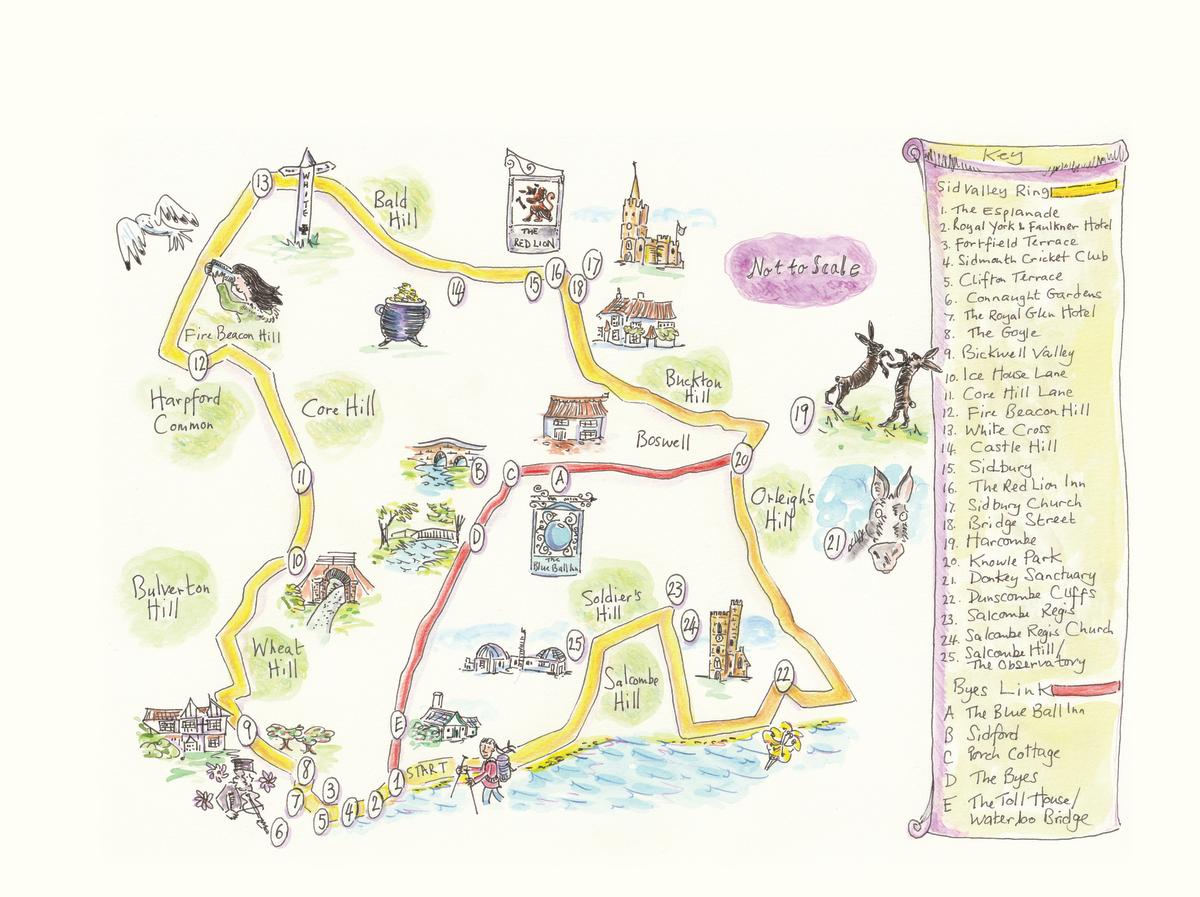 13
WHITE
Bald
Hill
THE
RED LION
14
15
16
17
18
Not to Scale
Fire Beacon Hill
12
Harpford
Common
Core Hill
Buckton
Hill
19
Boswell
B
C
A
20
11
Orleigh's
Hill
21
D
The
Blue Ball Inn
10
Bulverton
Hill
Soldier's
Hill
23
24
25
Wheat
Hill
Salcombe
Hill
22
9
E
8
START
7
3
1
2
4
5
6
Key
Sid Valley Ring
1. The Esplanade
2. Royal York & Faulkner Hotel
3. Fortfield Terrace
4. Sidmouth Cricket Club
5. Clifton Terrace
6. Connaught Gardens
7. The Royal Glen Hotel
8. The Goyle
9. Bickwell Valley
10. Ice House Lane
11. Core Hill Lane
12. Fire Beacon Hill
13. White Cross
14. Castle Hill
15. Sidbury
16. The Red Lion Inn
17. Sidbury Church
18. Bridge Street
19. Harcombe
20. Knowle Park
21. Donkey Sanctuary
22. Dunscombe Cliffs
23. Salcombe Regis
24. Salcombe Regis Church
25. Salcombe Hill/
The Observatory
Byes Link
A The Blue Ball Inn
B Sidford
C Porch Cottage
D The Byes
E The Toll House/
Waterloo Bridge